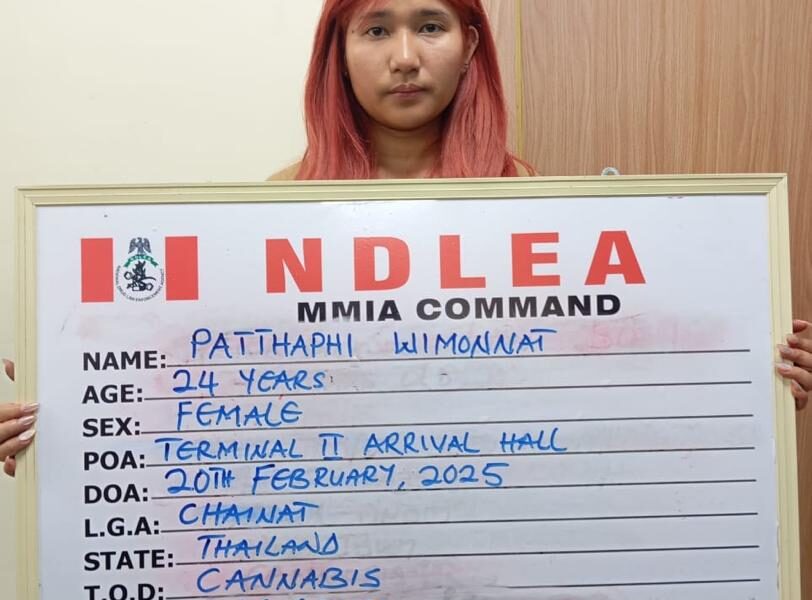 NDLEA
MMIA COMMAND
NAME: PATTHAPHI WIMONNAT
AGE: 24 YEARS
SEX: FEMALE
POA: TERMINAL II ARRIVAL HALL
DOA: 20TH FEBRUARY, 2025
L.G.A: CHAINAT
STATE: THAILAND
T.O.D: CANNABIS